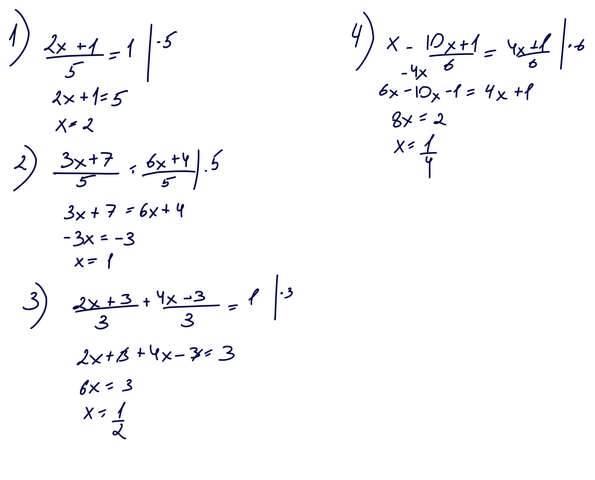 1) (2x+1)/5 = 1 | ·5
2x+1=5
x=2
2) (3x+7)/5 = (6x+4)/5 | ·5
3x+7=6x+4
-3x=-3
x=1
3) (2x+3)/3 + (4x-3)/3 = 1 | ·3
2x+3+4x-3=3
6x=3
x=1/2
4) x - (10x+1)/6 = (4x+1)/6 | ·6
-4x
6x-10x-1=4x+1
8x=2
x=1/4